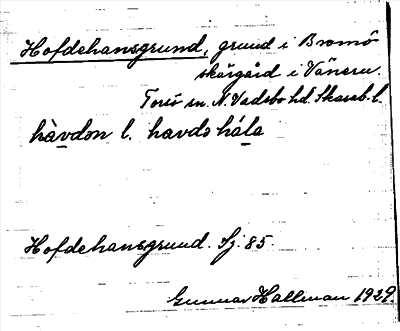 Hofdehansgrund, grund i Bromö
skärgård i Vänern.
Torsö sn. N. Vadsbo hd. Skarab. l.
hàvdən l. havdə hála
Hofdehansgrund. Sj. 85.
Gunnar Hallman 1929.